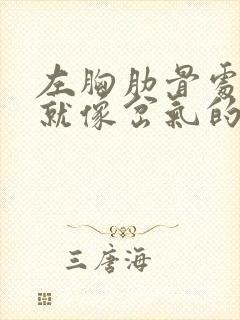 左胸肋骨处
就像岔氣的
三唐海